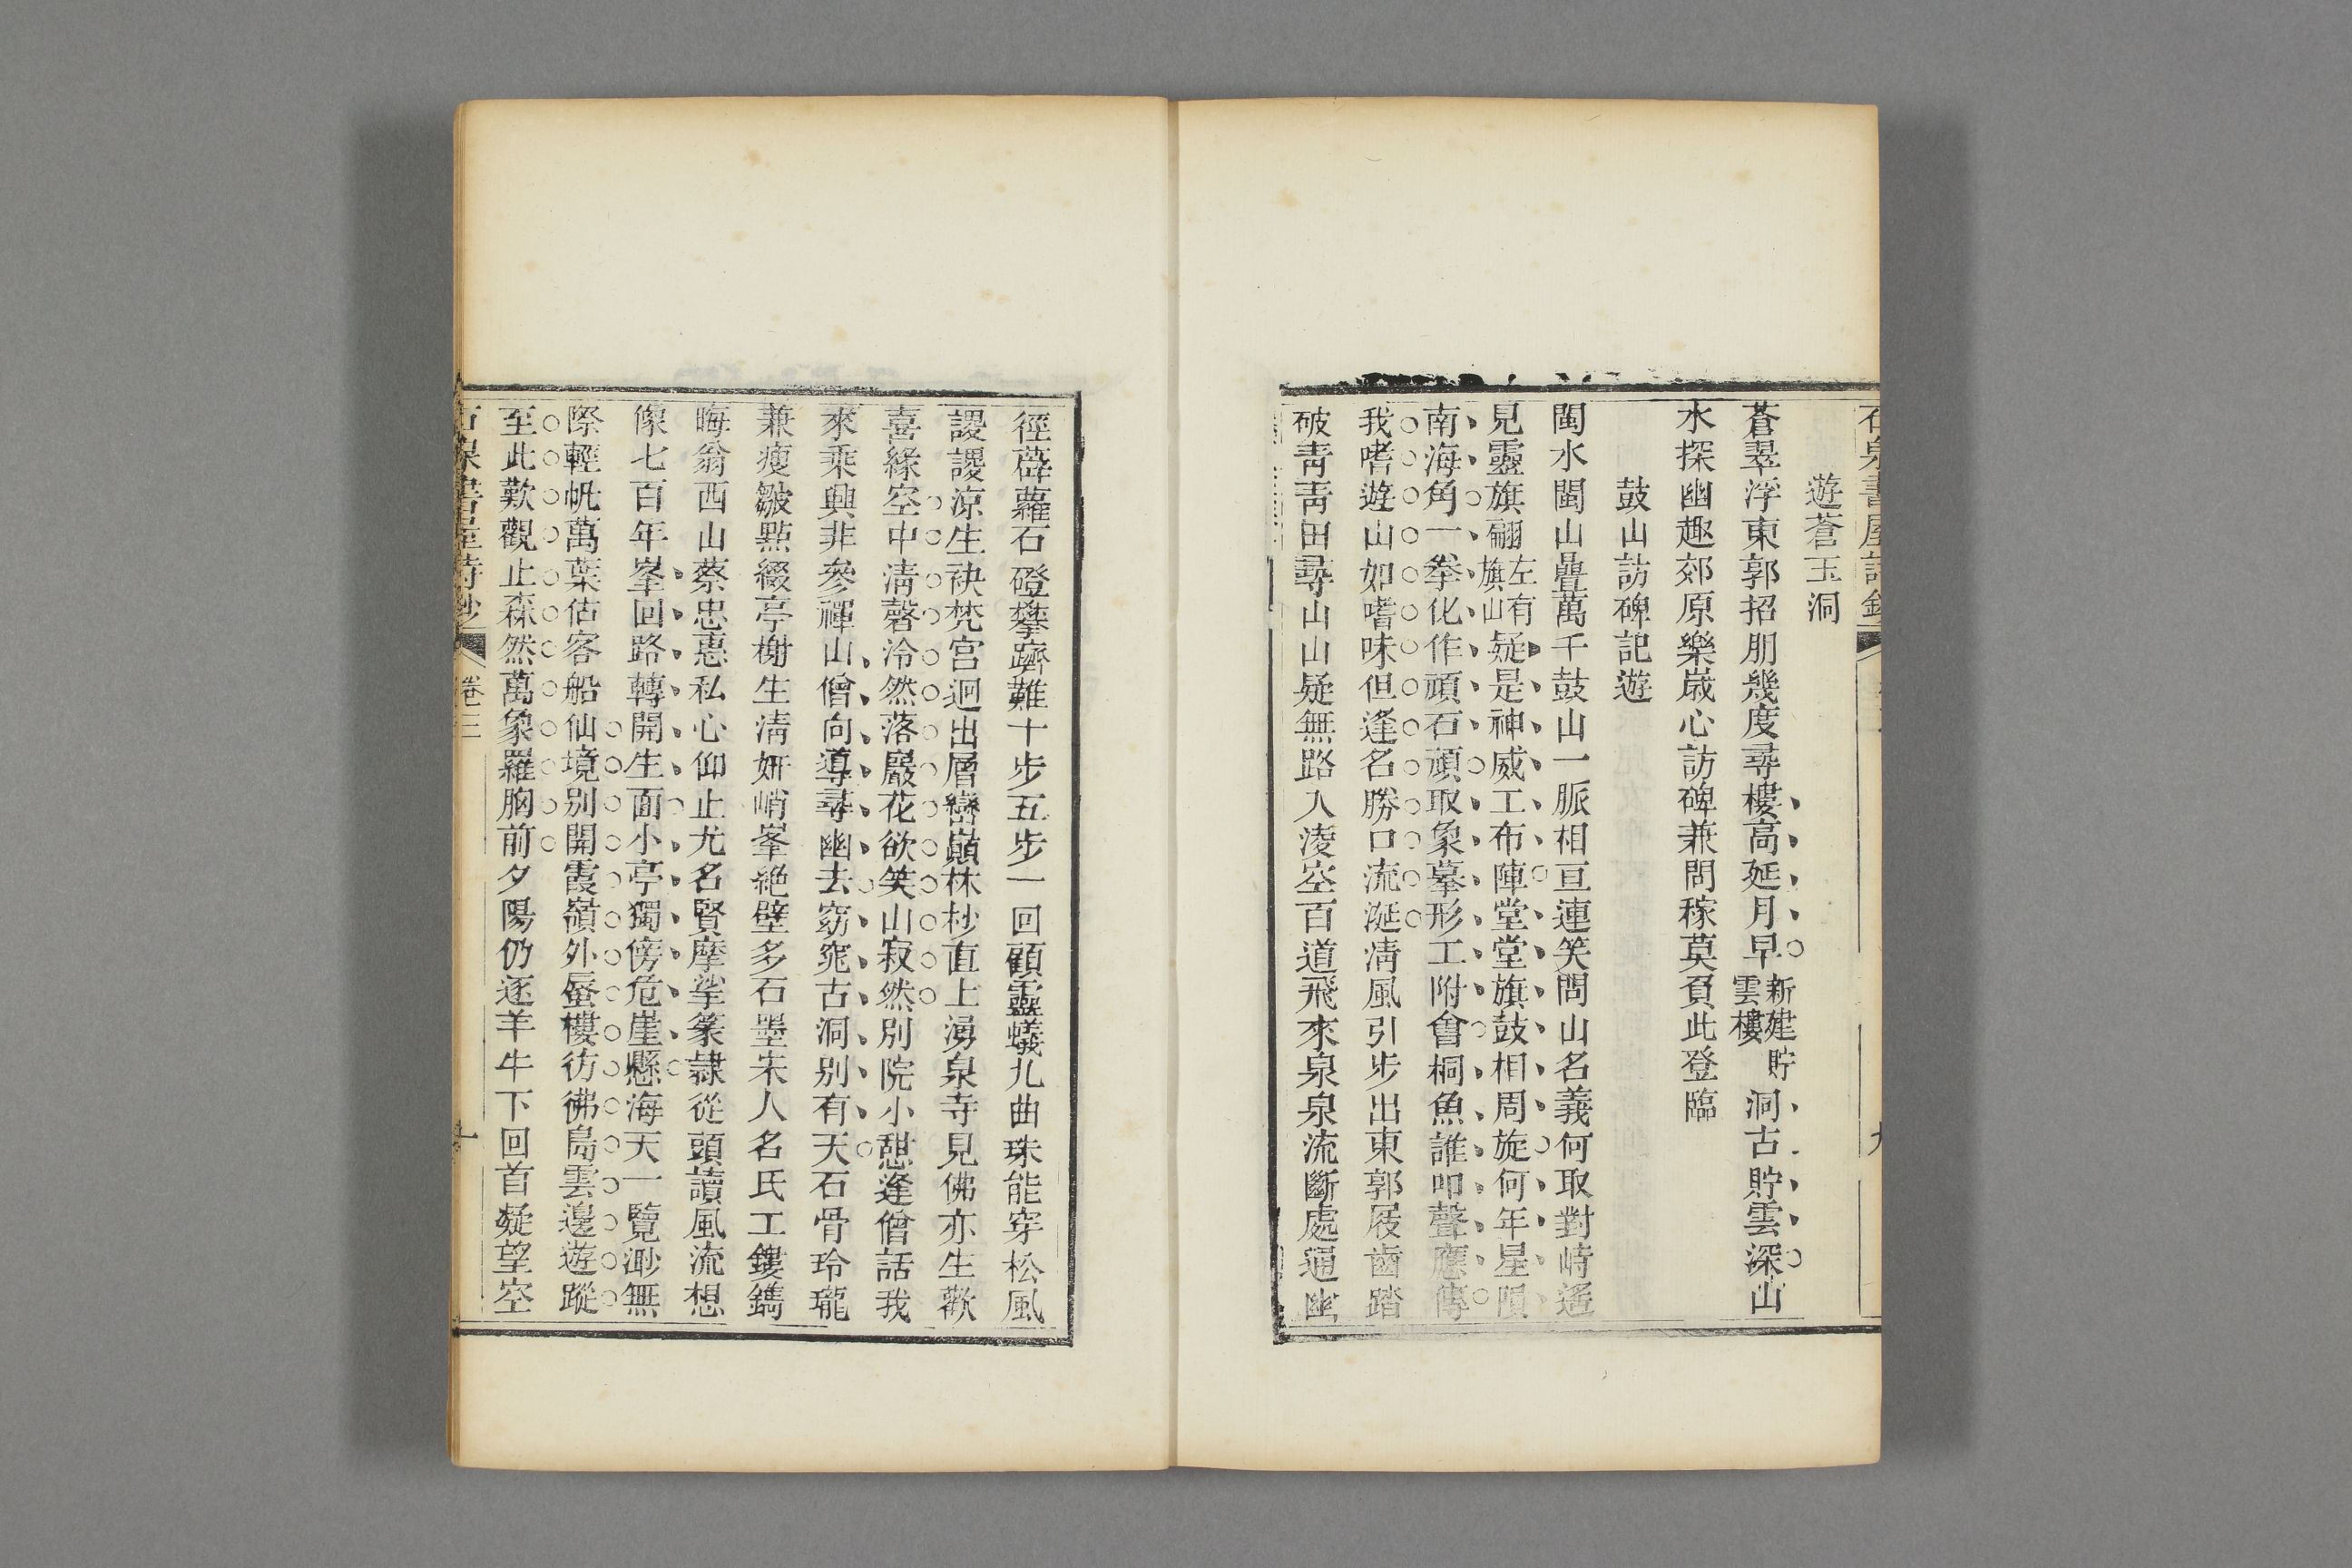 遊蒼玉洞
蒼翠浮東郭招朋幾度尋樓高延月早新建貯雲樓洞古貯雲深山
水探幽趣郊原樂歲心訪碑兼問稼莫負此登臨
鼓山訪碑記遊
閩水閩山疊萬千鼓山一脈相亘連笑問山名義何取對峙遥
見靈旗翩左有旗山疑是神威工布陣堂堂旗鼓相周旋何年星隕
南海角一拳化作頑石頑取象摹形工附會桐魚誰叩聲應傳
我嗜遊山如嗜味但逢名勝口流涎清風引步出東郭屐齒踏
破青青田尋山山疑無路入淩空百道飛來泉泉流斷處通幽
徑薜蘿石磴攀躋難十步五步一回顧靈蟻九曲珠能穿松風
謖謖凉生袂梵宮迥出層巒巔林杪直上湧泉寺見佛亦生歡
喜緣空中清磬泠然落巖花欲笑山寂然別院小憩逢僧話我
來乘興非參禪山僧向導尋幽去窈窕古洞別有天石骨玲瓏
兼瘦皺點綴亭榭生清妍峭峯絶壁多石墨宋人名氏工鏤鐫
晦翁西山蔡忠惠私心仰止尤名賢摩挲篆隷從頭讀風流想
像七百年峯回路轉開生面小亭獨傍危崖懸海天一覽渺無
際輕帆萬葉估客船仙境別開霞嶺外蜃樓彷彿島雲邊遊蹤
至此歎觀止森然萬象羅胸前夕陽仍逐羊牛下回首凝望空
卷三